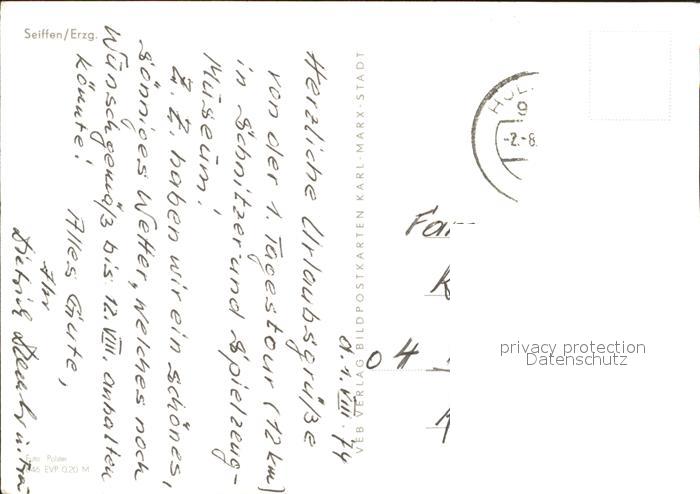 Seiffen/Erzg.
1. VIII. 74
Herzliche Urlaubsgrüße
von der 1. Tagestour (12 km)
in Schnitzer und Spielzeug-
Museum!
Z. Z. haben wir ein schönes,
sonniges Wetter, welches noch
Wunschgemäß bis 12. VIII. anhalten
könnte!
Alles Gute,
Ihr
Dietrich
VEB VERLAG BILDPOSTKARTEN KARL-MARX-STADT
Foto: Polster
EVP 0,20 M
-2.-8.
Fam
04
privacy protection
Datenschutz